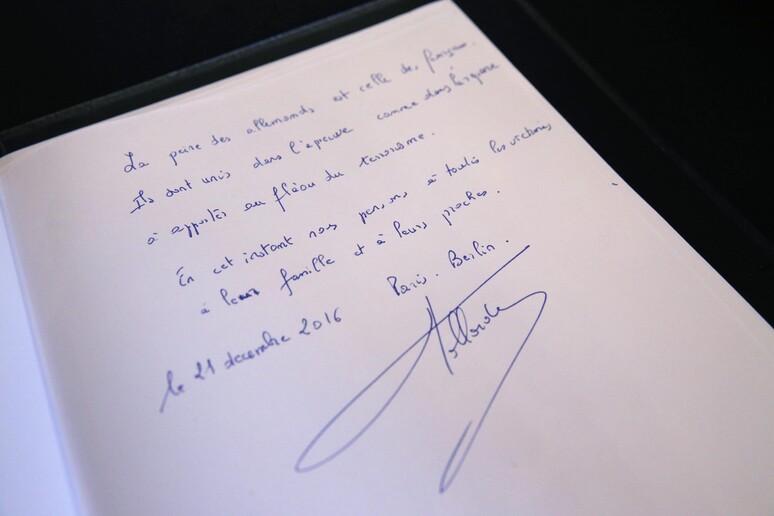 La peine des allemands est celle des français.
Ils sont unis dans l'épreuve comme dans la réponse
à apporter au fléau du terrorisme.
En cet instant nous pensons à toutes les victimes
à leur famille et à leurs proches.
Paris. Berlin.
le 21 décembre 2016
Hollande